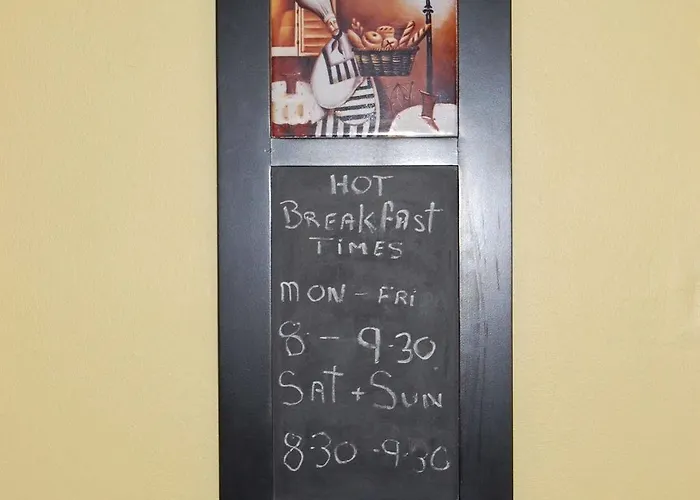 HOT
BREAKfAST
TIMES
MON - FRi
8 - 9.30
SAT + SUN
8.30 - 9.30